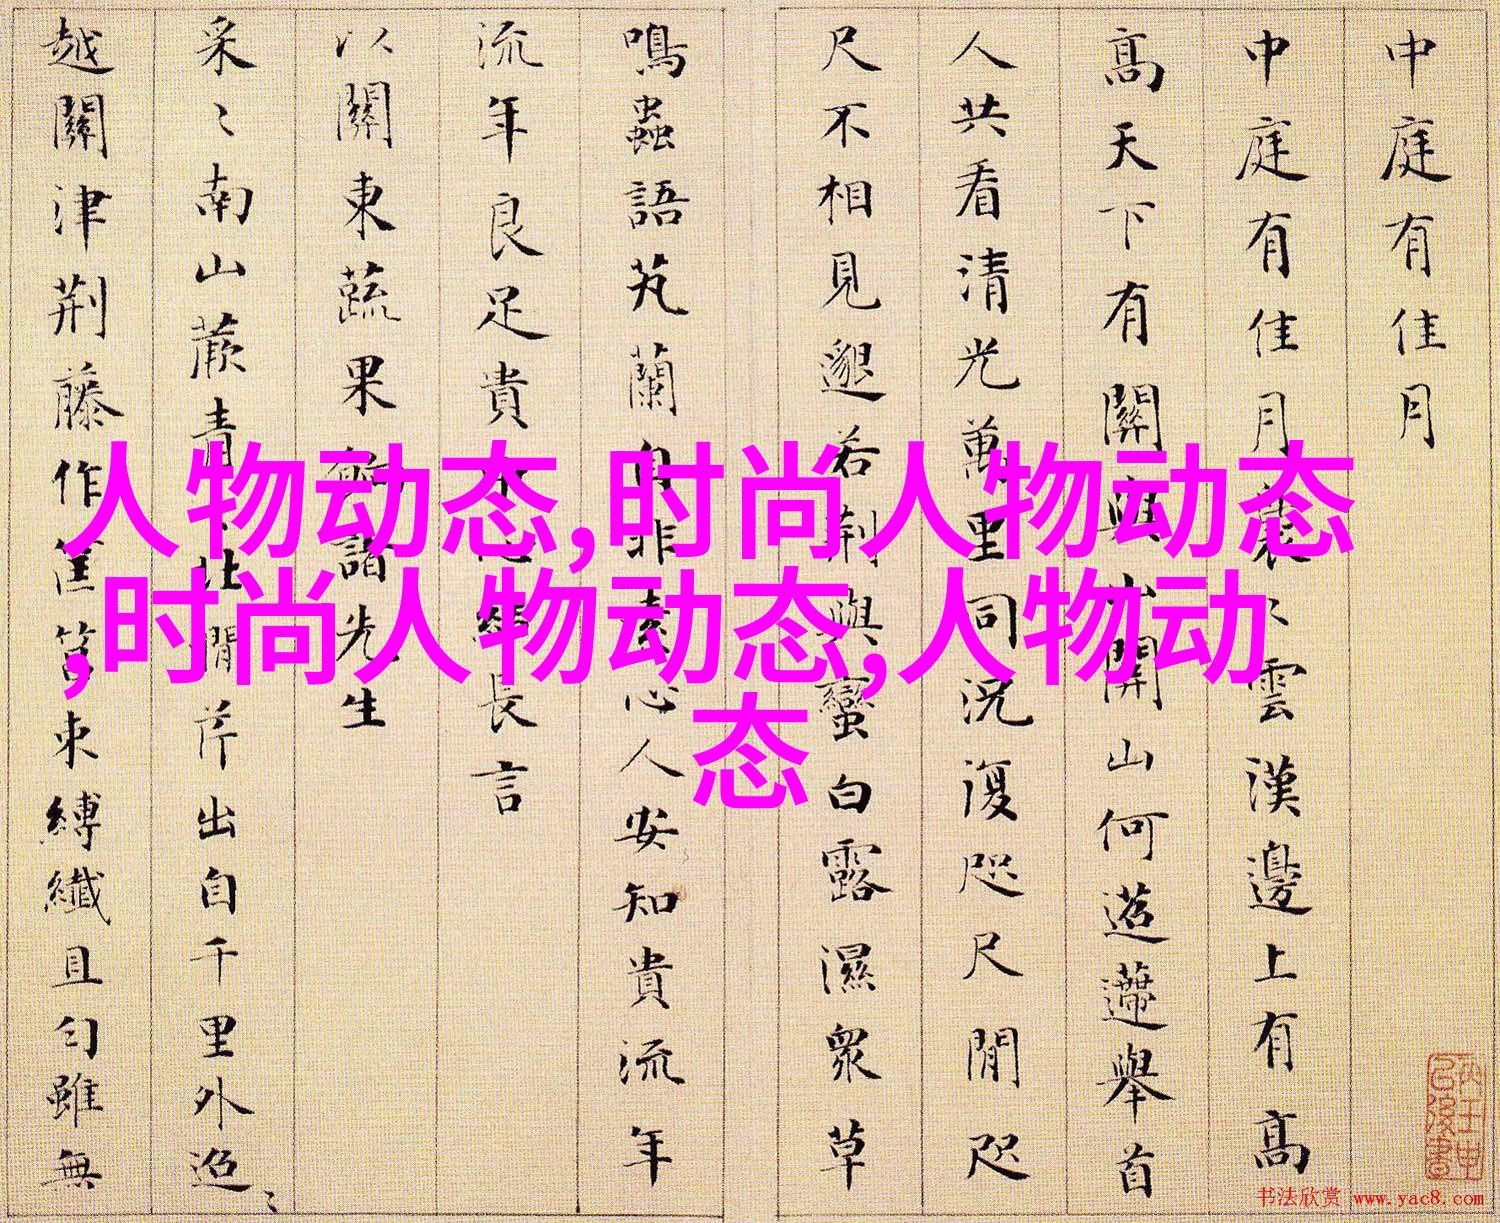 中庭有佳月
中庭有佳月〻雲漢邊上有高
高天下有關與山關山何迢遰舉首
人共看清光萬里同況復咫尺間咫
尺不相見邈若荆與蠻白露濕衆草
鳴蟲語芄蘭自非素心人安知貴流年
流年良足貴長言
以關東蔬果諸先生
采〻南山蕨青澗芹出自千里外迢〻
越關津荆藤作筐筥束縛纖且勻雖無
人物动态,时尚人物动态
,时尚人物动态,人物动
态
书法欣赏 www.yac8.com